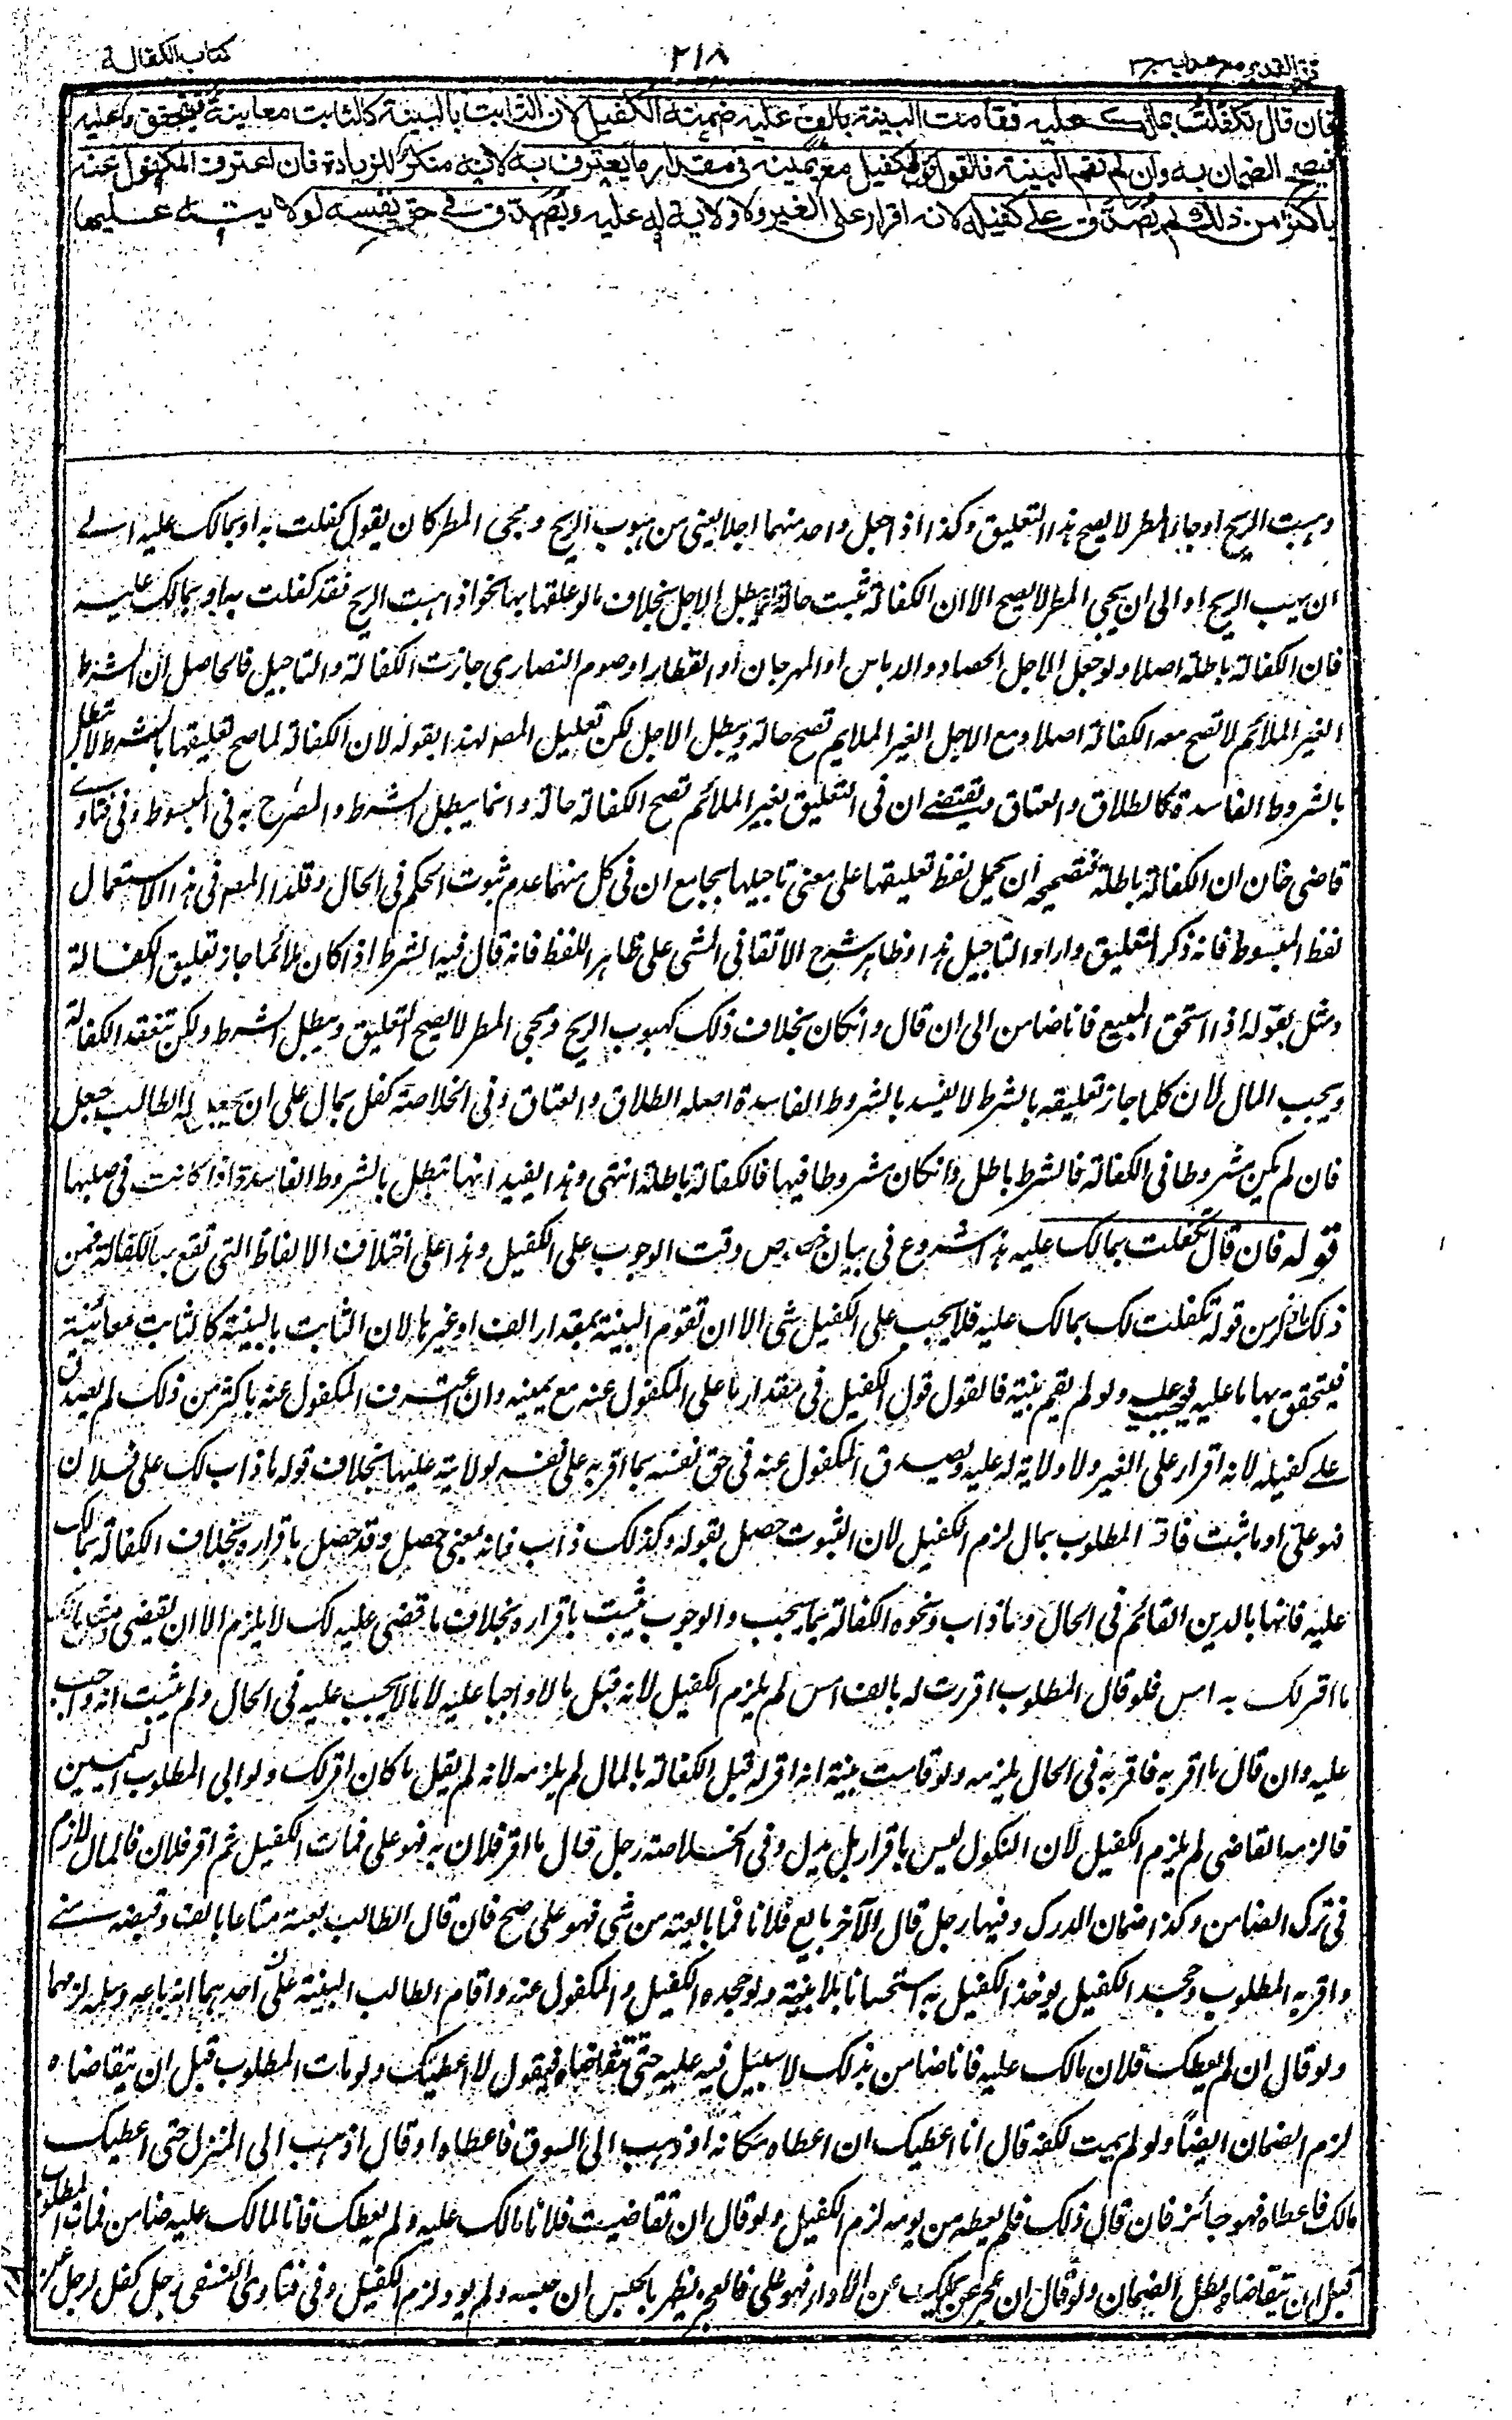 فتح القدير مع هدايه جـ ٣
٢١٨
كتاب الكفالة
فان قال تكفلت بمالك عليه فقامت البينة بالف عليه ضمنه الكفيل لان الثابت بالبينة كالثابت معاينة فيتحقق ما عليه
فيصح الضمان به وان لم تقم البينة فالقول قول الكفيل مع يمينه في مقدار ما يعترف به لانه منكر للزيادة فان اعترف المكفول عنه
باكثر من ذلك لم يصدق على كفيله لانه اقرار على الغير ولا ولاية له عليه ويصدق في حق نفسه لولايته عليها
وهبت الريح او جاء المطر لا يصح هذا التعليق وكذا اذا جعل واحد منهما اجلا يعنى من هبوب الريح ومجى المطر كان يقول كفلت به او بمالك عليه الى
ان يهب الريح او الى ان يجى المطر لا يصح الا ان الكفالة تثبت حالة ويبطل الاجل بخلاف ما لو علقها بها نحو اذا هبت الريح فقد كفلت به او بمالك عليه
فان الكفالة باطلة اصلا ولو جعل الاجل الحصاد والدياس او المهرجان او القطاف او صوم النصارى جازت الكفالة والتاجيل فالحاصل ان الشرط
الغير الملائم لا تصح معه الكفالة اصلا ومع الاجل الغير الملايم تصح حالة ويبطل الاجل لكن تعليل المصـ لهذا بقوله لان الكفالة لما صح تعليقها بالشرط لا تبطل
بالشروط الفاسدة كالطلاق والعتاق يقتضى ان فى التعليق بغير الملائم تصح الكفالة حالة وانما يبطل الشرط والمصرح به فى المبسوط وفى فتاوى
قاضى خان ان الكفالة باطلة فتصحيحه ان يحمل لفظ تعليقها على معنى تاجيلها بجامع ان فى كل منهما عدم ثبوت الحكم فى الحال وقلد المصـ فى هذا الاستعمال
لفظ المبسوط فانه ذكر التعليق واراد التاجيل هذا وظاهر شرح الاتقانى المشى على ظاهر اللفظ فانه قال فيه الشرط اذا كان ملائما جاز تعليق الكفالة
ومثل بقوله اذا استحق المبيع فانا ضامن الى ان قال وانكان بخلاف ذلك كهبوب الريح ومجى المطر لا يصح التعليق ويبطل الشرط ولكن تنعقد الكفالة
ويجب المال لان كلما جاز تعليقه بالشرط لا يفسد بالشروط الفاسدة اصله الطلاق والعتاق وفى الخلاصة كفل بمال على ان يجعل له الطالب جعل
فان لم يكن مشروطا فى الكفالة فالشرط باطل وانكان مشروطا فيها فالكفالة باطلة انتهى وهذا يفيد انها تبطل بالشروط الفاسدة اذا كانت فى صلبها
قوله فان قال تكفلت بمالك عليه هذا شروع فى بيان خصوص وقت الوجوب على الكفيل وهذا على اختلاف الالفاظ التى تقع بها الكفالة فمن
ذلك ما ذكر من قوله تكفلت لك بمالك عليه فلا يجب على الكفيل شى الا ان تقوم البينة بمقدار الف او غيرها لان الثابت بالبينة كالثابت معاينة
فيتحقق بها ما عليه فيجب عليه ولو لم يقم بينة فالقول قول الكفيل فى مقدار ما على المكفول عنه مع يمينه وان اعترف المكفول عنه باكثر من ذلك لم يصدق
على كفيله لانه اقرار على الغير ولا ولاية له عليه ويصدق المكفول عنه فى حق نفسه بما اقر به على نفسه لولايته عليها بخلاف قوله ما ذاب لك على فلان
فهو على او ما ثبت فاقر المطلوب بمال لزم الكفيل لان الثبوت حصل بقوله وكذلك ذاب فانه بمعنى حصل وقد حصل باقراره بخلاف الكفالة بمالك
عليه فانها بالدين القائم فى الحال وما ذاب ونحوه الكفالة بما يجب والوجوب يثبت باقراره بخلاف ما قضى عليه لك لا يلزم الا ان يقضى
ما اقر لك به امس فلو قال المطلوب اقررت له بالف امس لم يلزم الكفيل لانه قبل مالا واجبا عليه لا مالا يجب عليه فى الحال ولم يثبت انه واجب
عليه وان قال ما اقر به فاقر به فى الحال يلزمه ولو قامت بينة انه اقر له قبل الكفالة بالمال لم يلزمه لانه لم يقل ما كان اقر لك ولو ابى المطلوب اليمين
فالزمه القاضى لم يلزم الكفيل لان النكول ليس باقرار بل بدل وفى الخلاصة رجل قال ما اقر فلان به فهو على فمات الكفيل ثم اقر فلان فالمال لازم
فى ترك الضامن وكذا ضمان الدرك وفيها رجل قال لآخر بايع فلانا فما بايعته من شى فهو على صح فان قال الطالب بعته متاعا بالف وقبضه منى
واقر به المطلوب وجحد الكفيل يوخذ الكفيل به استحسانا بلا بينة ولو جحده الكفيل والمكفول عنه واقام الطالب البينة على احدهما انه باعه وسلمه لزمهما
ولو قال ان لم يعطك فلان مالك عليه فانا ضامن بذلك لا سبيل فيه عليه حتى يتقاضاه فيقول لا اعطيك ولو مات المطلوب قبل ان يتقاضاه
لزم الضمان ايضاً ولو لم يمت لكنه قال انا اعطيك ان اعطاه مكانه او ذهب الى السوق فاعطاه او قال اذهب الى المنزل حتى اعطيك
مالك فاعطاه فهو جائز فان قال ذلك فلم يعطه من يومه لزم الكفيل ولو قال ان تقاضيت فلانا مالك عليه ولم يعطك فانا لمالك عليه ضامن فمات المطلوب
قبل ان يتقاضاه بطل الضمان ولو قال ان عجز غريمك عن الاداء فهو على فالعجز يظهر بالحبس ان حبسه ولم يود لزم الكفيل وفى فتاوى النسفى رجل كفل لرجل عن